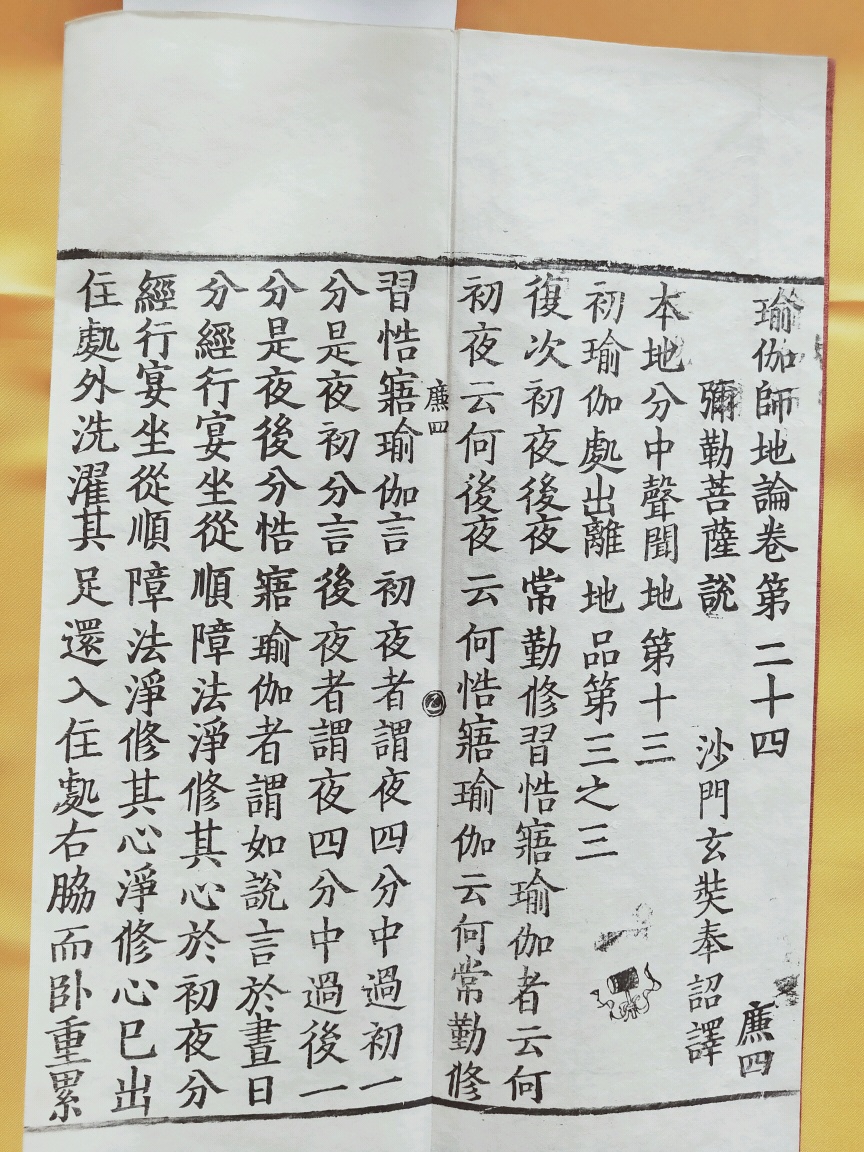 瑜伽師地論卷第二十四
廉四
彌勒菩薩說 沙門玄奘奉詔譯
本地分中聲聞地第十三
初瑜伽處出離地品第三之三
復次初夜後夜常勤修習悎寤瑜伽者云何
初夜云何後夜云何悎寤瑜伽云何常勤修
廉四
習悎寤瑜伽言初夜者謂夜四分中過初一
分是夜初分言後夜者謂夜四分中過後一
分是夜後分悎寤瑜伽者謂如說言於晝日
分經行宴坐從順障法淨修其心於初夜分
經行宴坐從順障法淨修其心淨修心已出
住處外洗濯其足還入住處右脇而卧重累